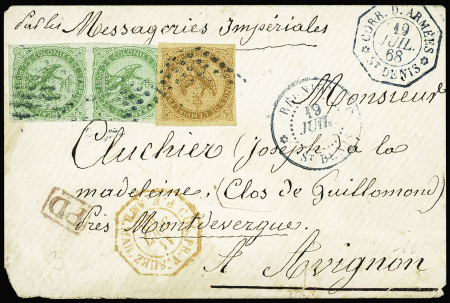 Par les Messageries Impériales
CORR. D. ARMÉES
19
JUIL.
68
ST DENIS
19
JUIL.
Monsieur
Cluchier (Joseph) à la
madeleine, (Clos de Guillomond)
près Montdevergue.
PD
A Avignon